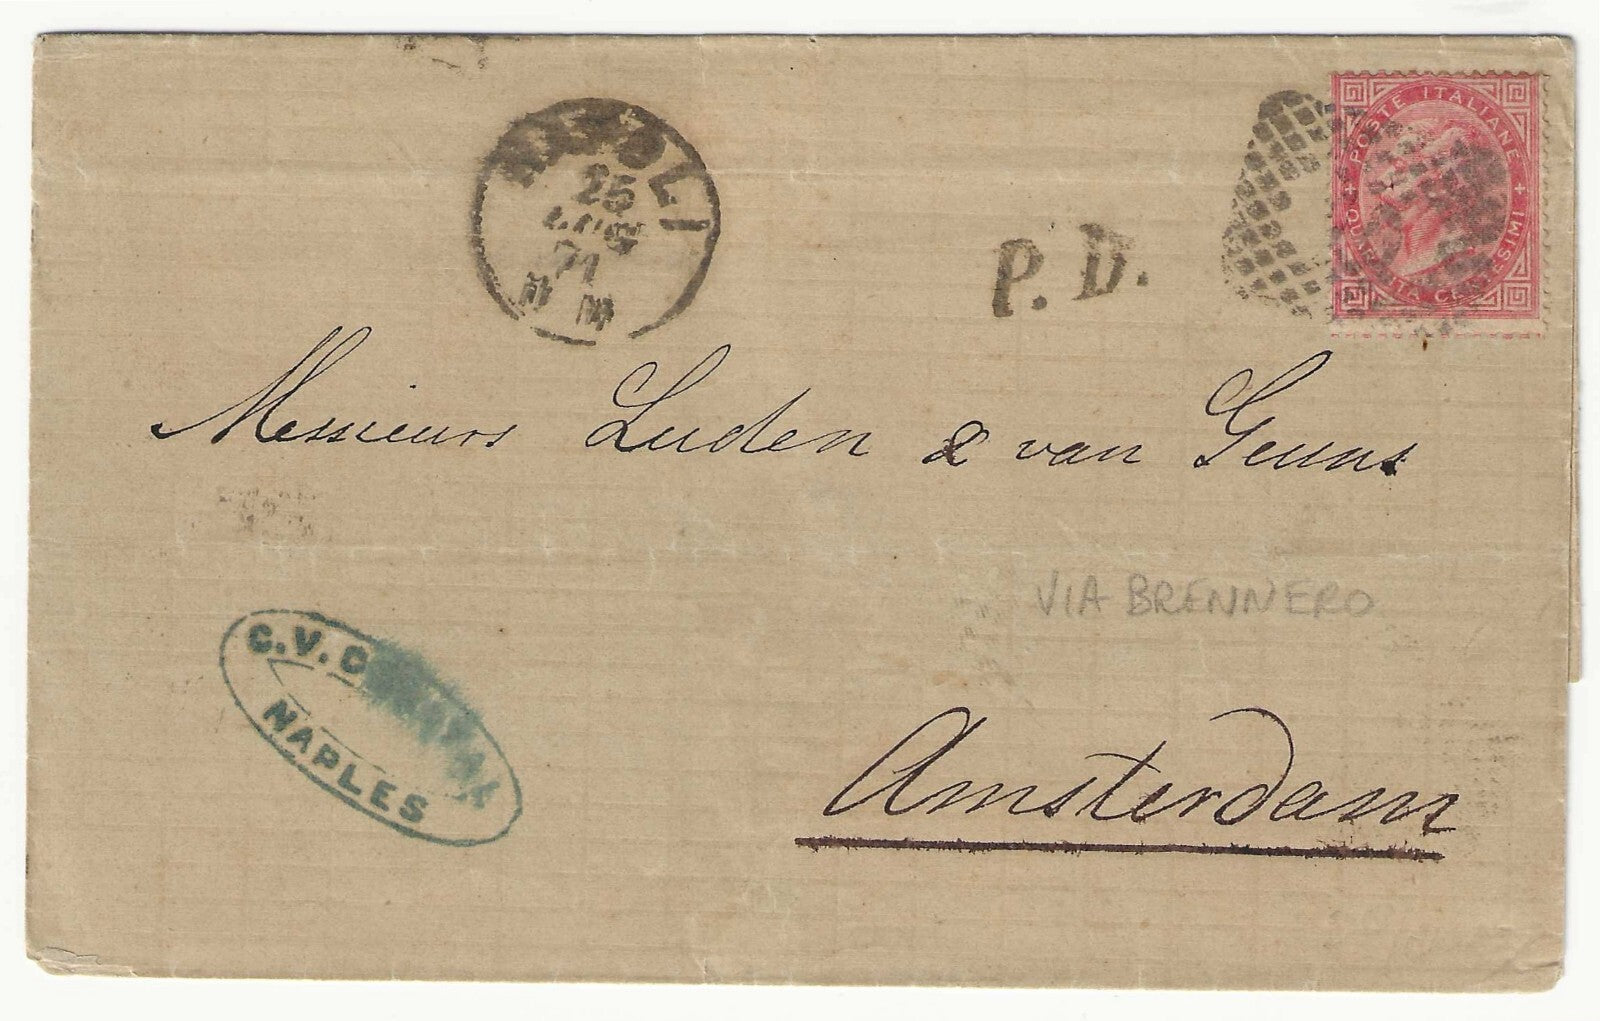 NAPOLI
25
LUG
71
P. D.
POSTE ITALIANE
QUARANTA CENTESIMI
Messieurs Luden & van Geuns
VIA BRENNERO
C. V.
NAPLES
Amsterdam